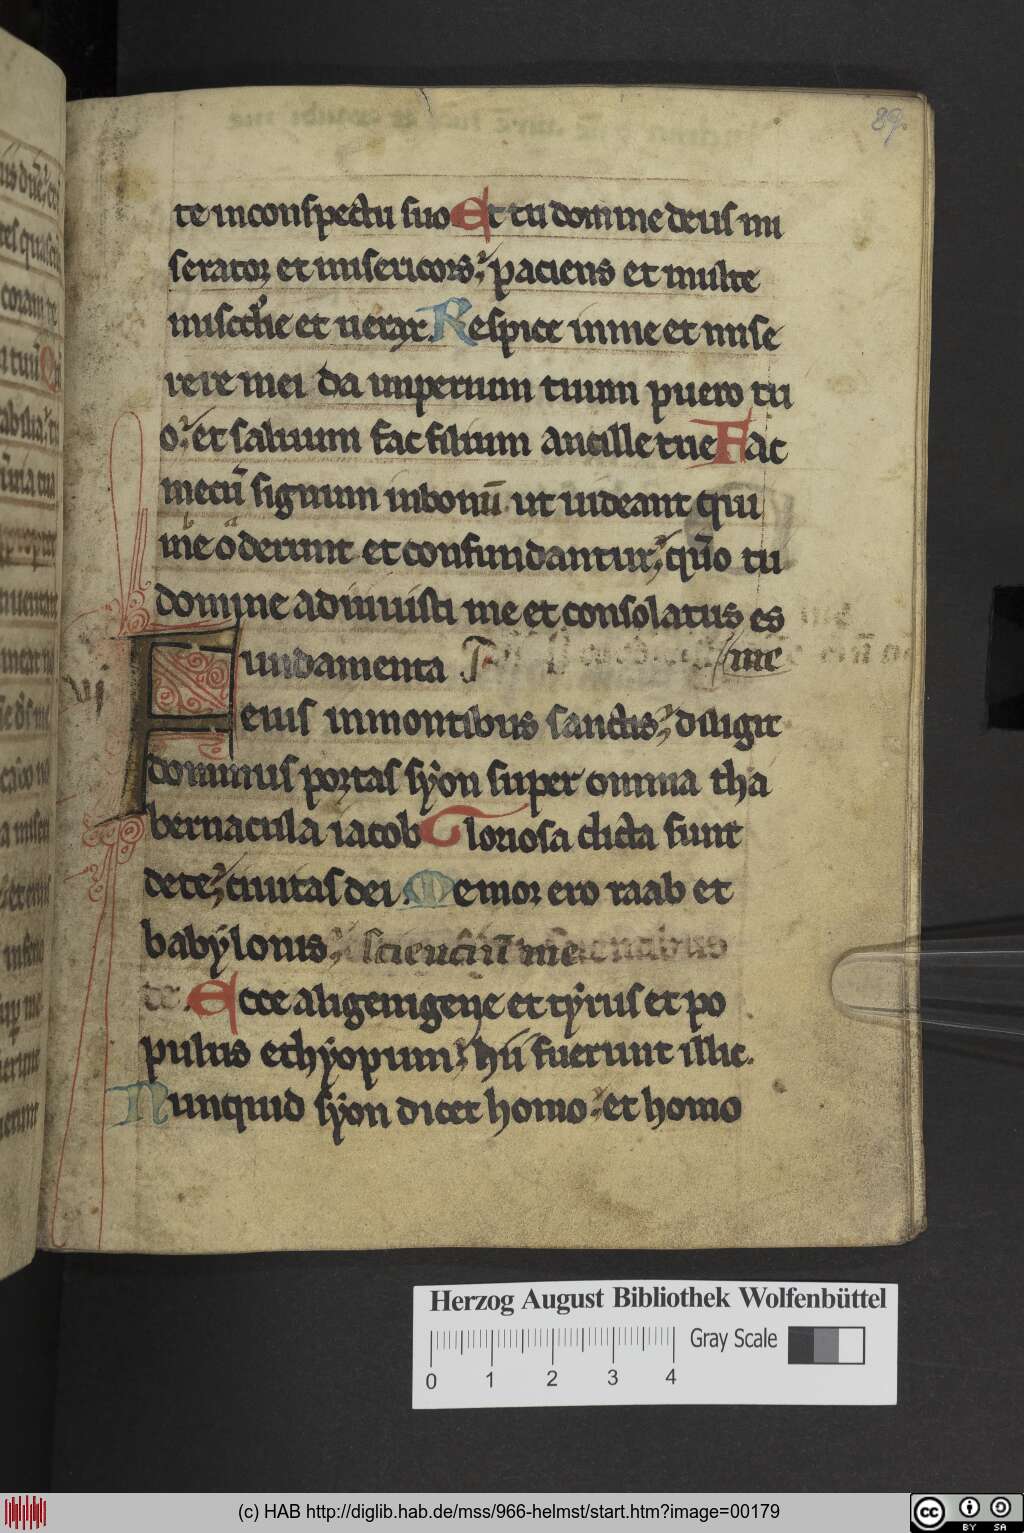 89.
te inconspectu suo Et tu domine deus mi
serator et misericors; paciens et multe
miscdie et uerax. Respice inme et mise
rere mei da imperium tuum puero tu
o; et saluum fac filium ancille tue Fac
mecū signum inbonū ut uideant qui
me oderunt et confundantur; qm̄o tu
domine adiuuisti me et consolatus es
Fundamenta me
eius inmontibus sanctis; diligit
dominus portas syon super omnia tha
bernacula iacob Gloriosa dicta sunt
dete; ciuitas dei. Memor ero raab et
babylonis; scienciū me
te. Ecce aligenigene et tyrus et po
pulus ethyopum; hii fuerunt illic.
Nunquid syon dicet homo; et homo
Herzog August Bibliothek Wolfenbüttel
Gray Scale
0 1 2 3 4
(c) HAB http://diglib.hab.de/mss/966-helmst/start.htm?image=00179
cc BY SA